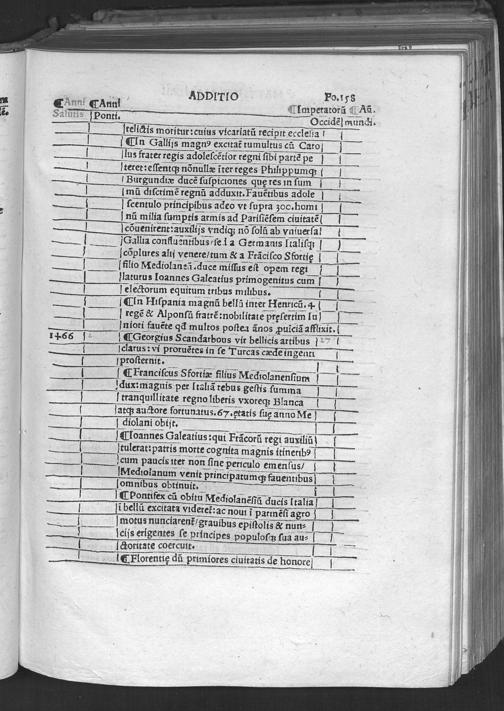 ADDITIO
Fo.158
¶Anni ¶Anni ¶Imperatorū ¶Aū.
Salutis Ponti. Occidē mundi.
relictis moritur: cuius vicariatū recipit ecclesia
¶In Gallijs magnꝰ excitat̄ tumultus cū Caro
lus frater regis adolescētior regni sibi partē pe
teret: essentqꝫ nōnullæ iter reges Philippumqꝫ
Burgundiæ ducē suspiciones quę res in sum
mū discrimē regnū adduxit. Fauētibus adole
scentulo principibus adeo vt supra 300. homi
nū milia sumptis armis ad Parisiēsem ciuitatē
cōuenirent: auxilijs vndiqꝫ nō solū ab vniuersa
Gallia confluentibus / se I a Germanis Italisqꝫ
cōplures alij venere / tum & a Frācisco Sfortię
filio Mediolanēū. duce missus est opem regi
laturus Ioannes Galeatius primogenitus cum
electorum equitum tribus milibus.
¶In Hispania magnū bellū inter Henricū. 4
regē & Alponsū fratrē: nobilitate presertim Iu
niori fauēte qd̄ multos postea ānos ꝓuīciā afflixit.
1466 2 ¶Georgius Scandarbous vir bellicis artibus 27
clarus: vi proruētes in se Turcas cæde ingenti
prosternit.
¶Franciscus Sfortiæ filius Mediolanensium
dux: magnis per Italiā rebus gestis summa
tranquillitate regno liberis vxoreqꝫ Blanca
atqꝫ auctore fortunatus. 67. ętatis suę anno Me
diolani obijt.
¶Ioannes Galeatius: qui Frācorū regi auxiliū
tulerat: patris morte cognita magnis itineribꝰ
cum paucis iter non sine periculo emensus /
Mediolanum venit principatumqꝫ fauentibus
omnibus obtinuit.
¶Pontifex cū obitu Mediolanēsiū ducis Italia
ī bellū excitata videret: ac noui ī parmēsi agro
motus nunciarent̄ / grauibus epistolis & nun⸗
cijs erigentes se principes populosqꝫ sua au⸗
ctoritate coercuit.
¶Florentię dū primiores ciuitatis de honore